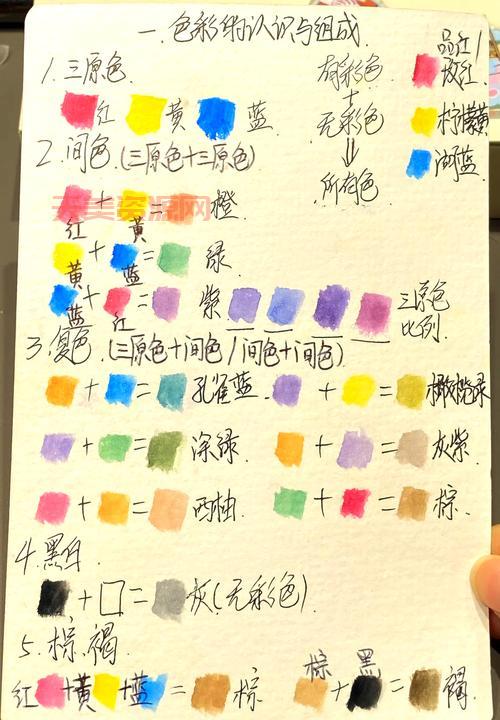 一. 色彩的认识与组成
1. 三原色.
红 黄 蓝
有彩色
+
无彩色
⇓
所有色
品红/玫红
柠檬黄
湖蓝
2. 间色. (三原色+三原色)
红 + 黄 = 橙
黄 + 蓝 = 绿
蓝 + 红 = 紫
三原色比例.
天美资源网
3. 复色. (三原色+间色/间色+间色)
+ = 孔雀蓝. + = 橄榄绿
+ = 深绿. + = 灰紫.
+ = 西柚. + = 棕.
4. 黑白.
+ = 灰(无彩色).
5. 棕.褐.
红+黄+蓝 = 棕 棕 + 黑 = 褐.